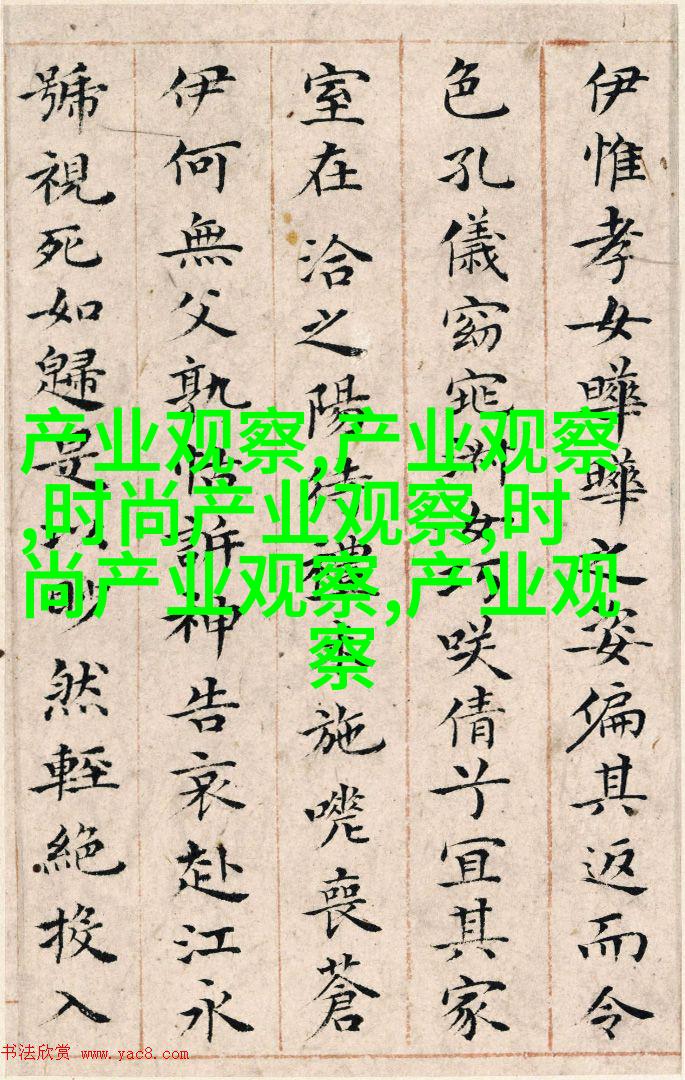 伊惟孝女曄曄之姿偏其返而令
色孔儀窈窕淑女巧咲倩兮宜其家
室在洽之陽待禮未施嗟喪蒼
伊何無父孰怙訴神告哀赴江永
號視死如歸是以眇然輕絕投入
产业观察,产业观察
,时尚产业观察,时
尚产业观察,产业观
察
书法欣赏 www.yac8.com